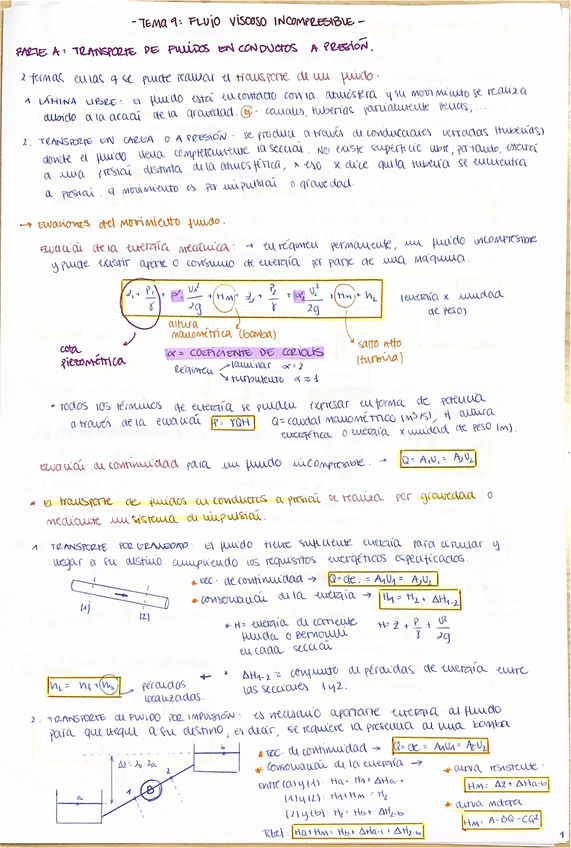 - TEMA 9: FLUJO VISCOSO INCOMPRESIBLE -
PARTE A: TRANSPORTE DE FLUIDOS EN CONDUCTOS A PRESIÓN.
2 formas en las q se puede realizar el transporte de un fluido:
1. LÁMINA LIBRE: El fluido está en contacto con la atmósfera y su movimiento se realiza
debido a la acción de la gravedad. canales, tuberías parcialmente llenas, ...
2. TRANSPORTE EN CARGA O A PRESIÓN: se produce a través de conducciones cerradas (tuberías)
donde el fluido llena completamente la sección. No existe superficie libre, por tanto, estará
a una presión distinta de la atmosférica, x eso x dice que la tubería se encuentra
a presión. El movimiento es por impulsión o gravedad.
→ Ecuaciones del movimiento fluido.
Ecuación de la energía mecánica: → en régimen permanente, un fluido incompresible
y puede existir aporte o consumo de energía por parte de una máquina.
z₁ + P₁/γ + α₁ U₁²/2g + HM = z₂ + P₂/γ + α₂ U₂²/2g + Hn + hL
(energía x unidad
de peso)
altura
manométrica (bomba)
salto neto
(turbina)
cota
piezométrica
α = COEFICIENTE DE CORIOLIS
Régimen laminar α=2
turbulento α≈1
• Todos los términos de energía se pueden expresar en forma de potencia
a través de la ecuación P=γQH Q=caudal manométrico (m³/s), H altura
energética o energía x unidad de peso (m).
Ecuación de continuidad para un fluido incompresible. → Q = A₁U₁ = A₂U₂
* El transporte de fluidos en conductos a presión se realiza por gravedad o
mediante un sistema de impulsión.
1. TRANSPORTE POR GRAVEDAD: El fluido tiene suficiente energía para circular y
llegar a su destino cumpliendo los requisitos energéticos especificados.
* ecc. de continuidad → Q=cte. = A₁U₁ = A₂U₂
* conservación de la energía → H₁ = H₂ + ΔH₁₋₂
(1)
(2)
* H = energía de corriente
fluida o Bernoulli
en cada sección
H = z + P/γ + U²/2g
hL = hf + hs → pérdidas
localizadas.
* ΔH₁₋₂ = conjunto de pérdidas de energía entre
las secciones 1 y 2.
2. TRANSPORTE DE FLUIDO POR IMPULSIÓN: es necesario aportarle energía al fluido
para que llegue a su destino, es decir, se requiere la presencia de una bomba
Δz = z_b - z_a
a
1
B
2
b
* ecc. de continuidad → Q=cte = A₁U₁ = A₂U₂
* conservación de la energía →
Entre (a) y (1): Ha = H₁ + ΔHa-1
(1) y (2): H₁ + HM = H₂
(2) y (b): H₂ = Hb + ΔH₂-b
Total: Ha + HM = Hb + ΔHa-1 + ΔH₂-b
* curva resistente:
HM = Δz + ΔHa-b
* curva motora
HM = A - BQ - CQ²
1